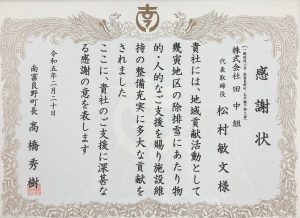 感謝状
株式会社田中組
代表取締役 松村敏文様
貴社には、地域貢献活動として
幾寅地区の除排雪にあたり物
的・人的なご支援を賜り施設維
持の整備充実に多大な貢献を
されました
ここに、貴社のご支援に深甚な
る感謝の意を表します
令和五年二月二十日
南富良野町長 高橋秀樹